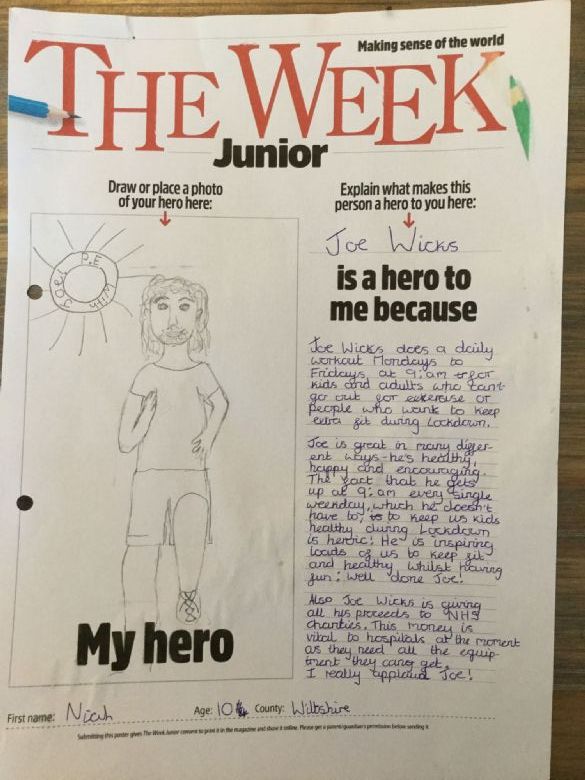 Making sense of the world
THE WEEK
Junior
Draw or place a photo
of your hero here:
P.E
With
Joe
Explain what makes this
person a hero to you here:
Joe Wicks
is a hero to
me because
Joe Wicks does a daily
workout Mondays to
Fridays, at 9:am for
kids and adults who can't
go out for exercise or
people who want to keep
extra fit during Lockdown.
Joe is great in many differ-
ent ways-he's healthy,
happy and encouraging.
The fact that he gets
up at 9:am every single
weekday, which he doesn't
have to, to keep us kids
healthy during Lockdown
is heroic! He is inspiring
loads of us to keep fit
and healthy whilst having
fun! Well done Joe!
Also Joe Wicks is giving
all his proceeds to NHS
charities. This money is
vital to hospitals at the moment
as they need all the equip-
tment they can get.
I really applaud Joe!
My hero
First name: Niah Age: 10 County: Wiltshire
Submitting this poster gives The Week Junior consent to print it in the magazine and share it online. Please get a parent/guardian's permission before sending it